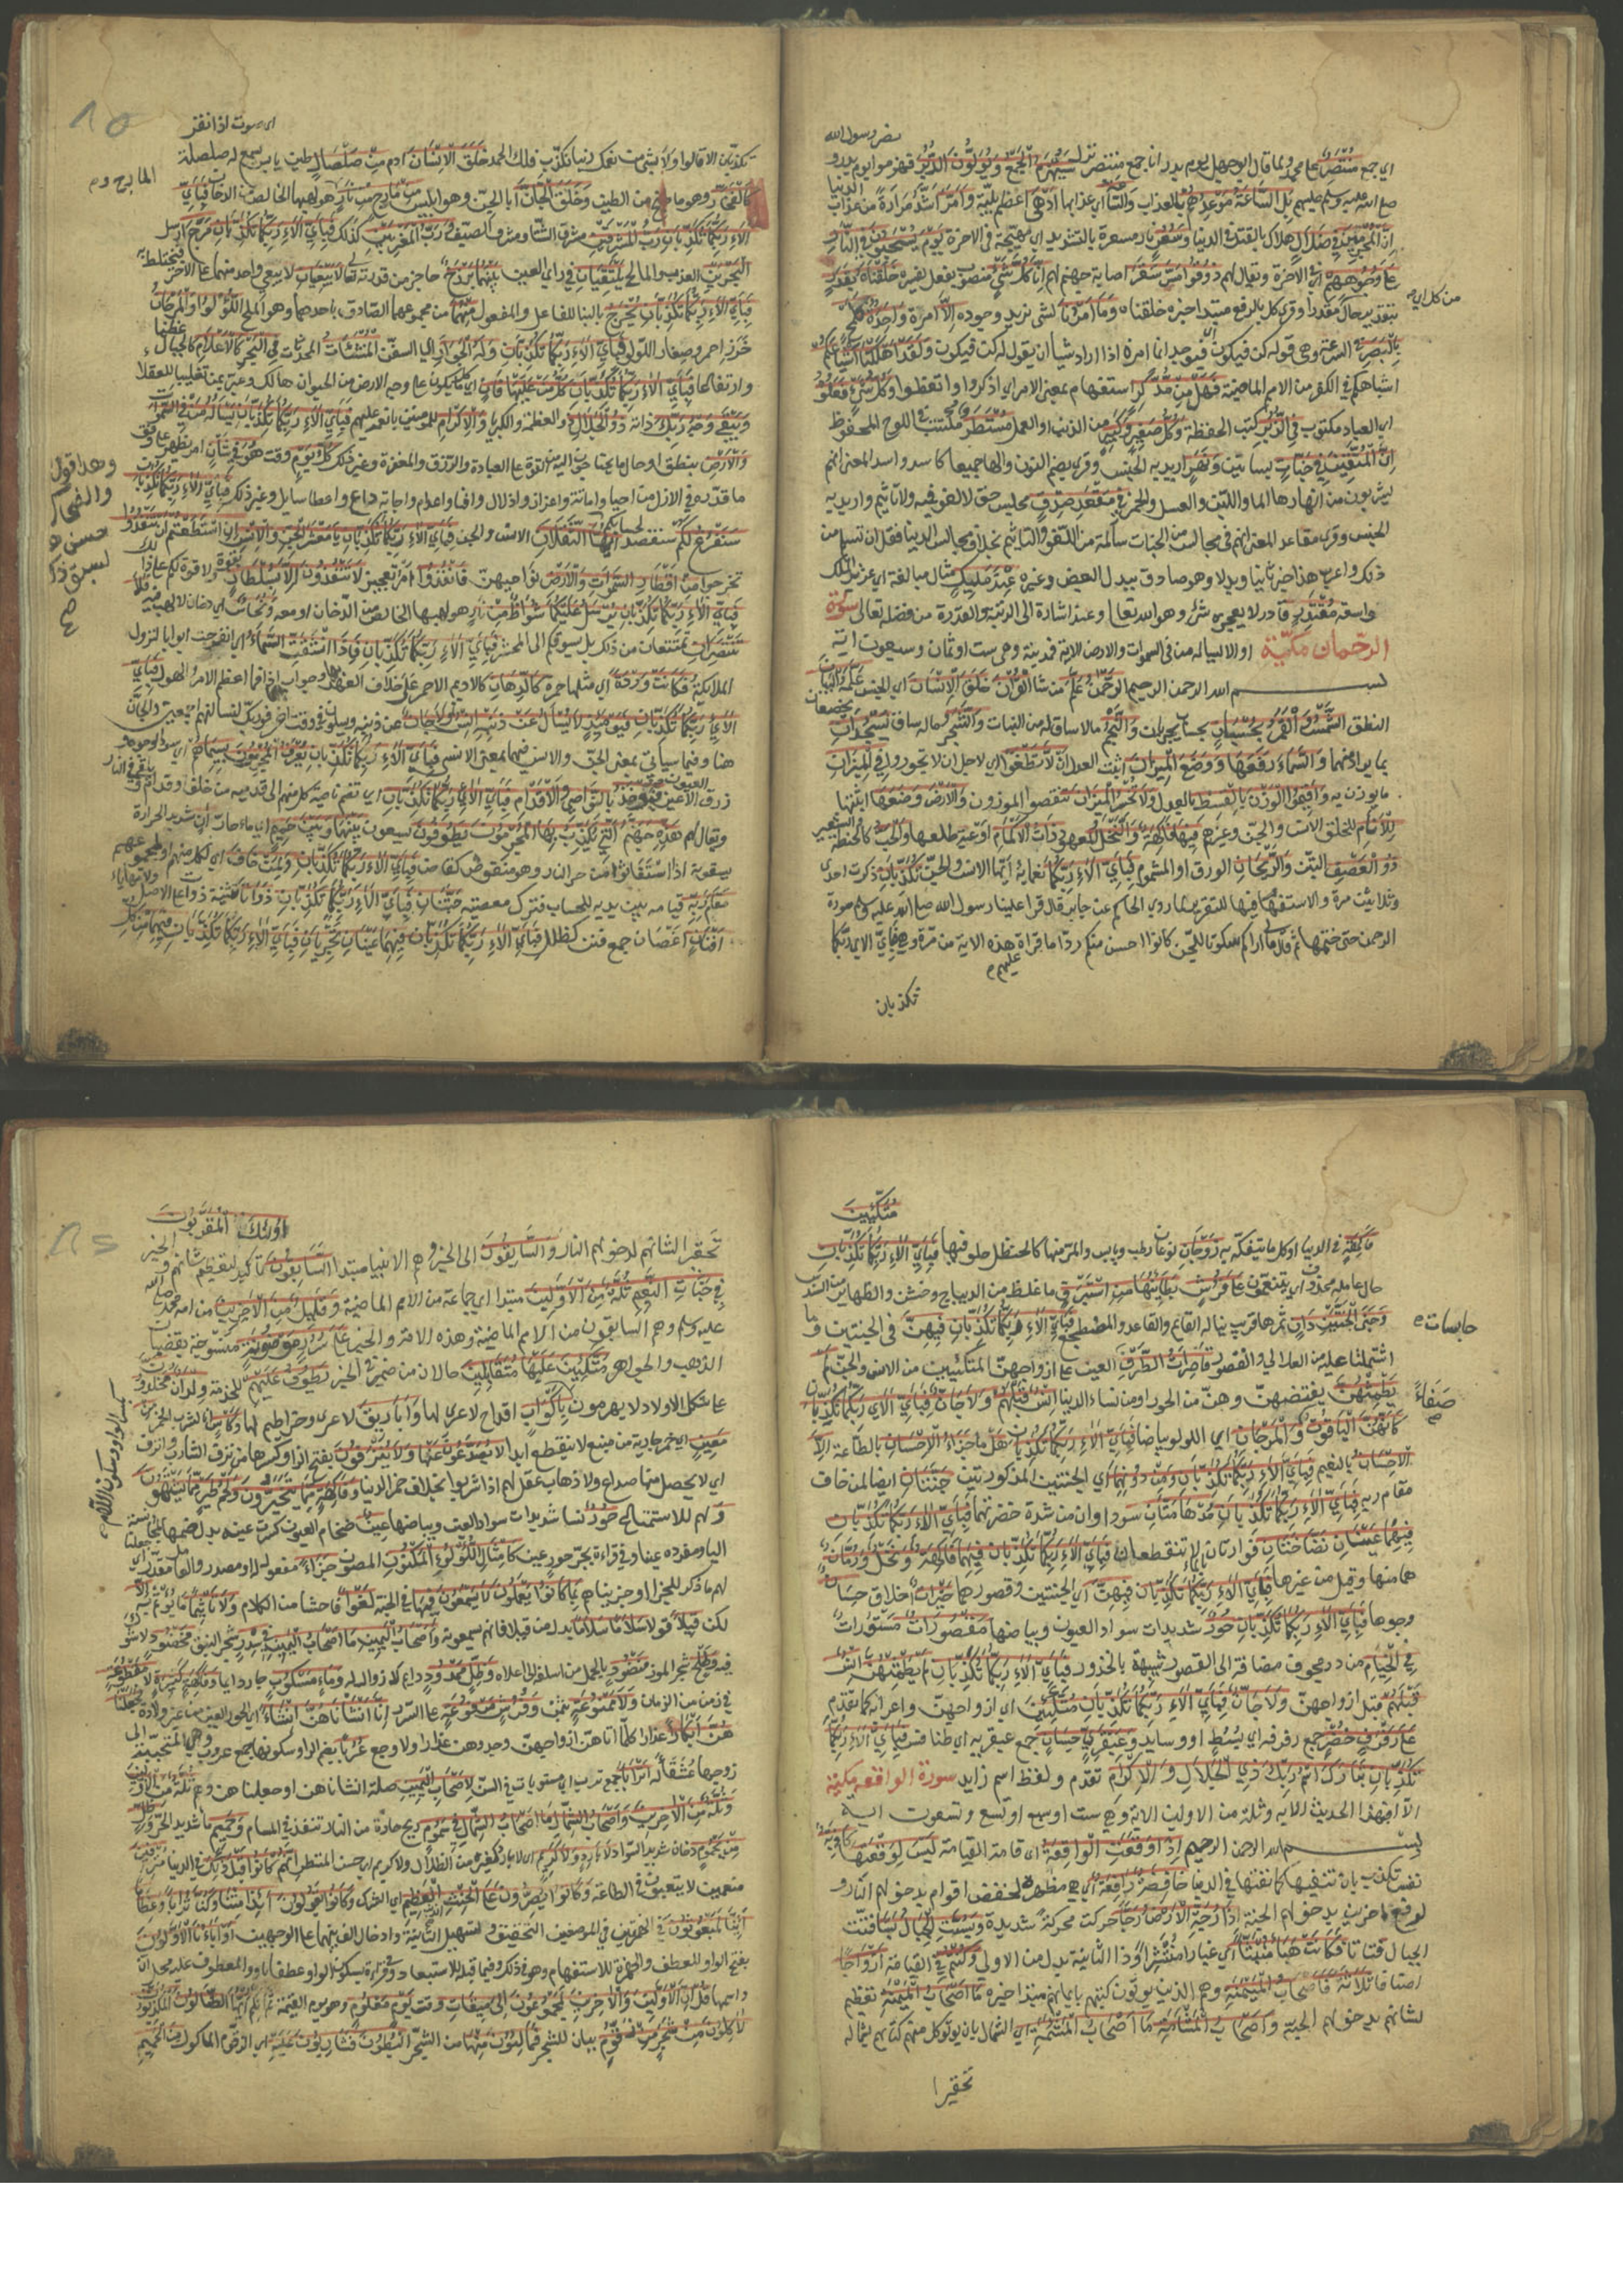 اي جمع منتصر على محمد ولما قال ابو جهل يوم بدر انا جمع منتصر نزل سيهزم الجمع ويولون الدبر فهزموا يوم بدر و
نصر رسول الله
صلى الله عليه وسلم عليهم بل الساعة موعدهم بالعذاب والساعة اي عذابها ادهى اعظم بلية وامر اشد مرارة من عذاب الدنيا
ان المجرمين في ضلال هلاك بالقتل في الدنيا وسعر نار مسعرة بالتشديد اي مهيجة في الاخرة يوم يسحبون في النار
على وجوههم اي في الاخرة ويقال لهم ذوقوا مس سقر اصابة جهنم لهم انا كل شي منصوب بفعل يفسره خلقناه بقدر
بتقدير حال من كل اي مقدرا وقرئ كل بالرفع مبتدا خبره خلقناه وما امرنا لشي نريد وجوده الا امرة واحدة كلمح
بالبصر في السرعة وهي قوله كن فيكون فيوجد انما امره اذا اراد شيا ان يقول له كن فيكون ولقد اهلكنا اشياعكم
اشباهكم في الكفر من الامم الماضية فهل من مدكر استفهام بمعنى الامر اي اذكروا واتعظوا وكل شي فعلوه
اي العباد مكتوب في الزبر كتب الحفظة وكل صغير وكبير من الذنب او العمل مستطر مكتتب في اللوح المحفوظ
ان المتقين في جنات بساتين ونهر اريد به الجنس وقرئ بضم النون والها جميعا كاسد واسد المعنى انهم
يشربون من انهارها الما واللبن والعسل والخمر في مقعد صدق مجلس حق لا لغو فيه ولا تاثيم واريد به
الجنس وقرئ مقاعد المعنى انهم في مجالس من الجنات سالمة من اللغو والتاثيم بخلاف مجالس الدنيا فقل ان تسلم من
ذلك واعرب هذا خبرا ثانيا وبدلا وهو صادق ببدل البعض وغيره عند مليك مثال مبالغة اي عزيز الملك
واسعه مقتدر قادر لا يعجزه شي وهو الله تعالى وعند اشارة الى الرتبة والقدرة من فضله تعالى سورة
الرحمان مكية او الا يساله من في السموات والارض الاية فمدنية وهي ست او ثمان وسبعون اية
بسم الله الرحمن الرحيم الرحمن علم من شا القران خلق الانسان اي الجنس علمه البيان
النطق الشمس والقمر بحسبان بحساب يجريان والنجم ما لا ساق له من النبات والشجر ما له ساق يسجدان يخضعان
بما يراد منهما والسماء رفعها ووضع الميزان اثبت العدل الا تطغوا اي لاجل ان لا تجوروا في الميزان
ما يوزن به واقيموا الوزن بالقسط بالعدل ولا تخسروا الميزان تنقصوا الموزون والارض وضعها اثبتها
للانام للخلق الانس والجن وغيرهم فيها فاكهة والنخل المعهود ذات الاكمام اوعية طلعها والحب كالحنطة والشعير
ذو العصف التبن والريحان الورق او المشموم فباي الاء ربكما نعما ايها الانس والجن تكذبان ذكرت احدى
وثلاثين مرة والاستفهام فيها للتقرير لما روى الحاكم عن جابر قال قرا علينا رسول الله صلى الله عليه وسلم سورة
الرحمن حتى ختمها ثم قال ما لي اراكم سكوتا للجن كانوا احسن منكم ردا ما قرات عليهم هذه الاية من مرة فباي الاء ربكما
تكذبان
تكذبان الا قالوا ولا بشي من نعمك ربنا نكذب فلك الحمد خلق الانسان ادم من صلصال طين يابس يسمع له صلصلة
اي صوت اذا نقر
كالفخار وهو ما طبخ من الطين وخلق الجان ابا الجن وهو ابليس من مارج من نار هو لهبها الخالص من الدخان فباي
الاء ربكما تكذبان رب المشرقين مشرق الشتا ومشرق الصيف ورب المغربين كذلك فباي الاء ربكما تكذبان مرج ارسل
البحرين العذب والمالح يلتقيان في راي العين بينهما برزخ حاجز من قدرته تعالى لا يبغيان لا يبغي واحد منهما على الاخر فيختلط به
فباي الاء ربكما تكذبان يخرج بالبنا للفاعل والمفعول منهما من مجموعهما الصادق باحدهما وهو الملح اللؤلؤ والمرجان
خرز احمر وصغار اللؤلؤ فباي الاء ربكما تكذبان وله الجوار اي السفن المنشئات المحدثات في البحر كالاعلام كالجبال عظما
وارتفاعا فباي الاء ربكما تكذبان كل من عليها فان اي ما يكون على وجه الارض من الحيوان هالك وعبر بمن تغليبا للعقلا
ويبقى وجه ربك ذاته ذو الجلال والعظمة والكبريا والاكرام للمومنين بانعمه عليهم فباي الاء ربكما تكذبان يساله من في السموات
والارض بنطق او حال ما يحتاجون اليه من القوة على العبادة والرزق والمغفرة وغير ذلك كل يوم وقت هو في شان امر يظهره على وفق
ما قدره في الازل من احيا واماتة واعزاز واذلال واغنا واعدام واجابة داع واعطا سايل وغير ذلك فباي الاء ربكما تكذبان
سنفرغ لكم سنقصد لحسابكم ايها الثقلان الانس والجن فباي الاء ربكما تكذبان يا معشر الجن والانس ان استطعتم ان تنفذوا
تخرجوا من اقطار السموات والارض نواحيهن فانفذوا امر تعجيز لا تنفذون الا بسلطان بقوة ولا قوة لكم على ذلك
فباي الاء ربكما تكذبان يرسل عليكما شواظ من نار هو لهبها الخالص من الدخان او معه ونحاس اي دخان لا لهب فيه فلا
تنتصران تمتنعان من ذلك بل يسوقكم الى المحشر فباي الاء ربكما تكذبان فاذا انشقت السماء انفرجت ابوابا لنزول
الملائكة فكانت وردة اي مثلها محمرة كالدهان كالاديم الاحمر على خلاف العهد بها وجواب اذا فما اعظم الهول فباي
الاء ربكما تكذبان فيومئذ لا يسال عن ذنبه انس ولا جان عن ذنبه ويسالون في وقت اخر فوربك لنسالنهم اجمعين والجان
هنا وفيما سياتي بمعنى الجن والانس فيهما بمعنى الانسي فباي الاء ربكما تكذبان يعرف المجرمون بسيماهم اي سواد الوجوه
زرق العيون فيؤخذ بالنواصي والاقدام فباي الاء ربكما تكذبان اي تضم ناصية كل منهم الى قدميه من خلف او قدام ويلقى في النار
ويقال لهم هذه جهنم التي يكذب بها المجرمون يطوفون يسعون بينها وبين حميم ماء حار ان شديد الحرارة
يسقونه اذا استغاثوا من حر النار وهو منقوص كقاض فباي الاء ربكما تكذبان ولمن خاف اي لكل منهم او لمجموعهم
مقام ربه قيامه بين يديه للحساب فترك معصيته جنتان فباي الاء ربكما تكذبان ذواتا تثنية ذوات على الاصل
افنان اغصان جمع فنن كطلل فباي الاء ربكما تكذبان فيهما عينان تجريان فباي الاء ربكما تكذبان فيهما من كل
وهذا قول
والضحاك
حسن
متكئين
فاكهة في الدنيا او كل ما يتفكه به زوجان نوعان رطب ويابس والمر منها كالحنظل حلو فيها فباي الاء ربكما تكذبان
حال عامله محذوف اي يتنعمون على فرش بطاينها من استبرق ما غلظ من الديباج وخشن والظهاير من السندس
وجنى الجنتين دان ثمرها قريب يناله القايم والقاعد والمضطجع فباي الاء ربكما تكذبان فيهن في الجنتين وما
اشتملتا عليه من العلالي والقصور قاصرات الطرف العين على ازواجهن المتكئين من الانس والجن لم
يطمثهن يفتضهن وهن من الحور او من نساء الدنيا انس قبلهم ولا جان فباي الاء ربكما تكذبان
كانهن الياقوت والمرجان اي اللؤلؤ بياضا فباي الاء ربكما تكذبان هل ما جزاء الاحسان بالطاعة الا
الاحسان بالنعيم فباي الاء ربكما تكذبان ومن دونهما اي الجنتين المذكورتين جنتان ايضا لمن خاف
مقام ربه فباي الاء ربكما تكذبان مدهامتان سوداوان من شدة خضرتهما فباي الاء ربكما تكذبان
فيهما عينان نضاختان فوارتان بالماء لا تنقطعان فباي الاء ربكما تكذبان فيهما فاكهة ونخل ورمان
هما منها وقيل من غيرها فباي الاء ربكما تكذبان فيهن اي الجنتين وقصورهما خيرات اخلاقا حسان
وجوها فباي الاء ربكما تكذبان حور شديدات سواد العيون وبياضها مقصورات مستورات
في الخيام من در مجوف مضافة الى القصور شبيهة بالخدور فباي الاء ربكما تكذبان لم يطمثهن انس
قبلهم قبل ازواجهن ولا جان فباي الاء ربكما تكذبان متكئين اي ازواجهن واعرابه كما تقدم
على رفرف خضر جمع رفرفه اي بسط او وسايد وعبقري حسان جمع عبقريه اي طنافس فباي الاء ربكما
تكذبان تبارك اسم ربك ذي الجلال والاكرام تقدم ولفظ اسم زايد سورة الواقعه مكية
الا افبهذا الحديث الايه وثلة من الاولين الاية وهي ست او سبع او تسع وتسعون اية
بسم الله الرحمن الرحيم اذا وقعت الواقعة اي قامة القيامة ليس لوقعتها كاذبة
نفس تكذب بان تنفيها كما نفتها في الدنيا خافضة رافعة اي هي مظهرة لخفض اقوام بدخولهم النار و
لرفع اخرين بدخولهم الجنة اذا رجت الارض رجا حركت حركة شديدة وبست الجبال بسا فتتت
الجبال فتاتا فكانت هبا منبثا اي غبارا منتشرا واذا الثانية بدل من الاولى وكنتم في القيامة ازواجا
اصنافا ثلاثة فاصحاب الميمنة وهم الذين يوتون كتبهم بايمانهم مبتدا خبره ما اصحاب الميمنة تعظيم
لشانهم بدخولهم الجنة واصحاب المشامة ما اصحاب المشئمة اي الشمال بان يوتى كل منهم كتابه بشماله
تحقيرا
تحقير الشانهم لدخولهم النار والسابقون الى الخير وهم الانبيا مبتدا السابقون تاكيد لتعظيم شانهم والخبر
اولئك المقربون
في جنات النعيم ثلة من الاولين مبتدا اي جماعة من الامم الماضية وقليل من الاخرين من امة محمد صلى الله
عليه وسلم وهم السابقون من الامم الماضية وهذه الامة والخبر على سرر موضونة منسوجة بقضبان
الذهب والجواهر متكئين عليها متقابلين حالان من ضمير في الخبر يطوف عليهم للخدمة ولدان مخلدون
على شكل الاولاد لا يهرمون باكواب اقداح لا عرى لها واباريق لها عرى وخراطيم وكاس اناء لشرب الخمر من
معين اي خمر جارية من منبع لا ينقطع ابدا لا يصدعون عنها ولا ينزفون بفتح الزاي وكسرها من نزف الشارب وانزف
اي لا يحصل منها صداع ولا ذهاب عقل لهم اذا شربوا بخلاف خمر الدنيا وفاكهة مما يتخيرون ولحم طير مما يشتهون
ولهم للاستمتاع حور نسا شديدات سواد العين وبياضها عين ضخام العيون كسرت عينه بدل ضمها لمجانسة
اليا ومفرده عينا وفي قراءة بجر حور عين كامثال اللؤلؤ المكنون المصون جزاء مفعول له او مصدر والعامل مقدر اي جعلنا
لهم ما ذكر للجزا او جزيناهم بما كانوا يعملون لا يسمعون فيها في الجنة لغوا فاحشا من الكلام ولا تاثيما ما يوثم الا
لكن قيلا قولا سلاما سلاما بدل من قيلا فانهم يسمعونه واصحاب اليمين ما اصحاب اليمين في سدر شجر النبق مخضود لا شوك
فيه وطلح شجر الموز منضود بالحمل من اسفله الى اعلاه وظل ممدود دايم لا زوال له وماء مسكوب جار دايما وفاكهة كثيرة لا مقطوعة
في زمن من الازمان ولا ممنوعة بثمن وفرش مرفوعة على السرر انا انشاناهن انشاء اي الحور العين من غير ولادة فجعلناهن
هن ابكارا عذارا كلما اتاهن ازواجهن وجدوهن عذارا ولا وجع عربا بضم الراء وسكونها جمع عروب وهي المتحببة الى
زوجها عشقا له اترابا جمع ترب اي مستويات في السن لاصحاب اليمين صلة انشاناهن او جعلناهن وهم ثلة من الاولين
وثلة من الاخرين واصحاب الشمال ما اصحاب الشمال في سموم ريح حارة من النار تنفذ في المسام وحميم ما شديد الحر وظل
من يحموم دخان شديد السواد لا بارد ولا كريم اي لا بارد كغيره من الظلال ولا كريم اي حسن المنظر انهم كانوا قبل ذلك في الدنيا مترفين
منعمين لا يتعبون في الطاعة وكانوا يصرون على الحنث العظيم اي الشرك وكانوا يقولون ائذا متنا وكنا ترابا وعظاما
ائنا لمبعوثون في الهمزتين في الموضعين التحقيق وتسهيل الثانية وادخال الف بينهما على الوجهين او اباءنا الاولون
بفتح الواو للعطف والهمزة للاستفهام وهو في ذلك وفيما قبله للاستبعاد وفي قراءة بسكون الواو عطفا باو والمعطوف عليه محل ان
واسمها قل ان الاولين والاخرين لمجموعون الى ميقات وقت يوم معلوم وهو يوم القيمة ثم انكم ايها الضالون المكذبون
لاكلون من شجر من زقوم بيان للشجر فمالئون منها من الشجر البطون فشاربون عليه اي الزقوم الماكول من الحميم
حابسات
صفاء
بكسر الواو وسكون اللام